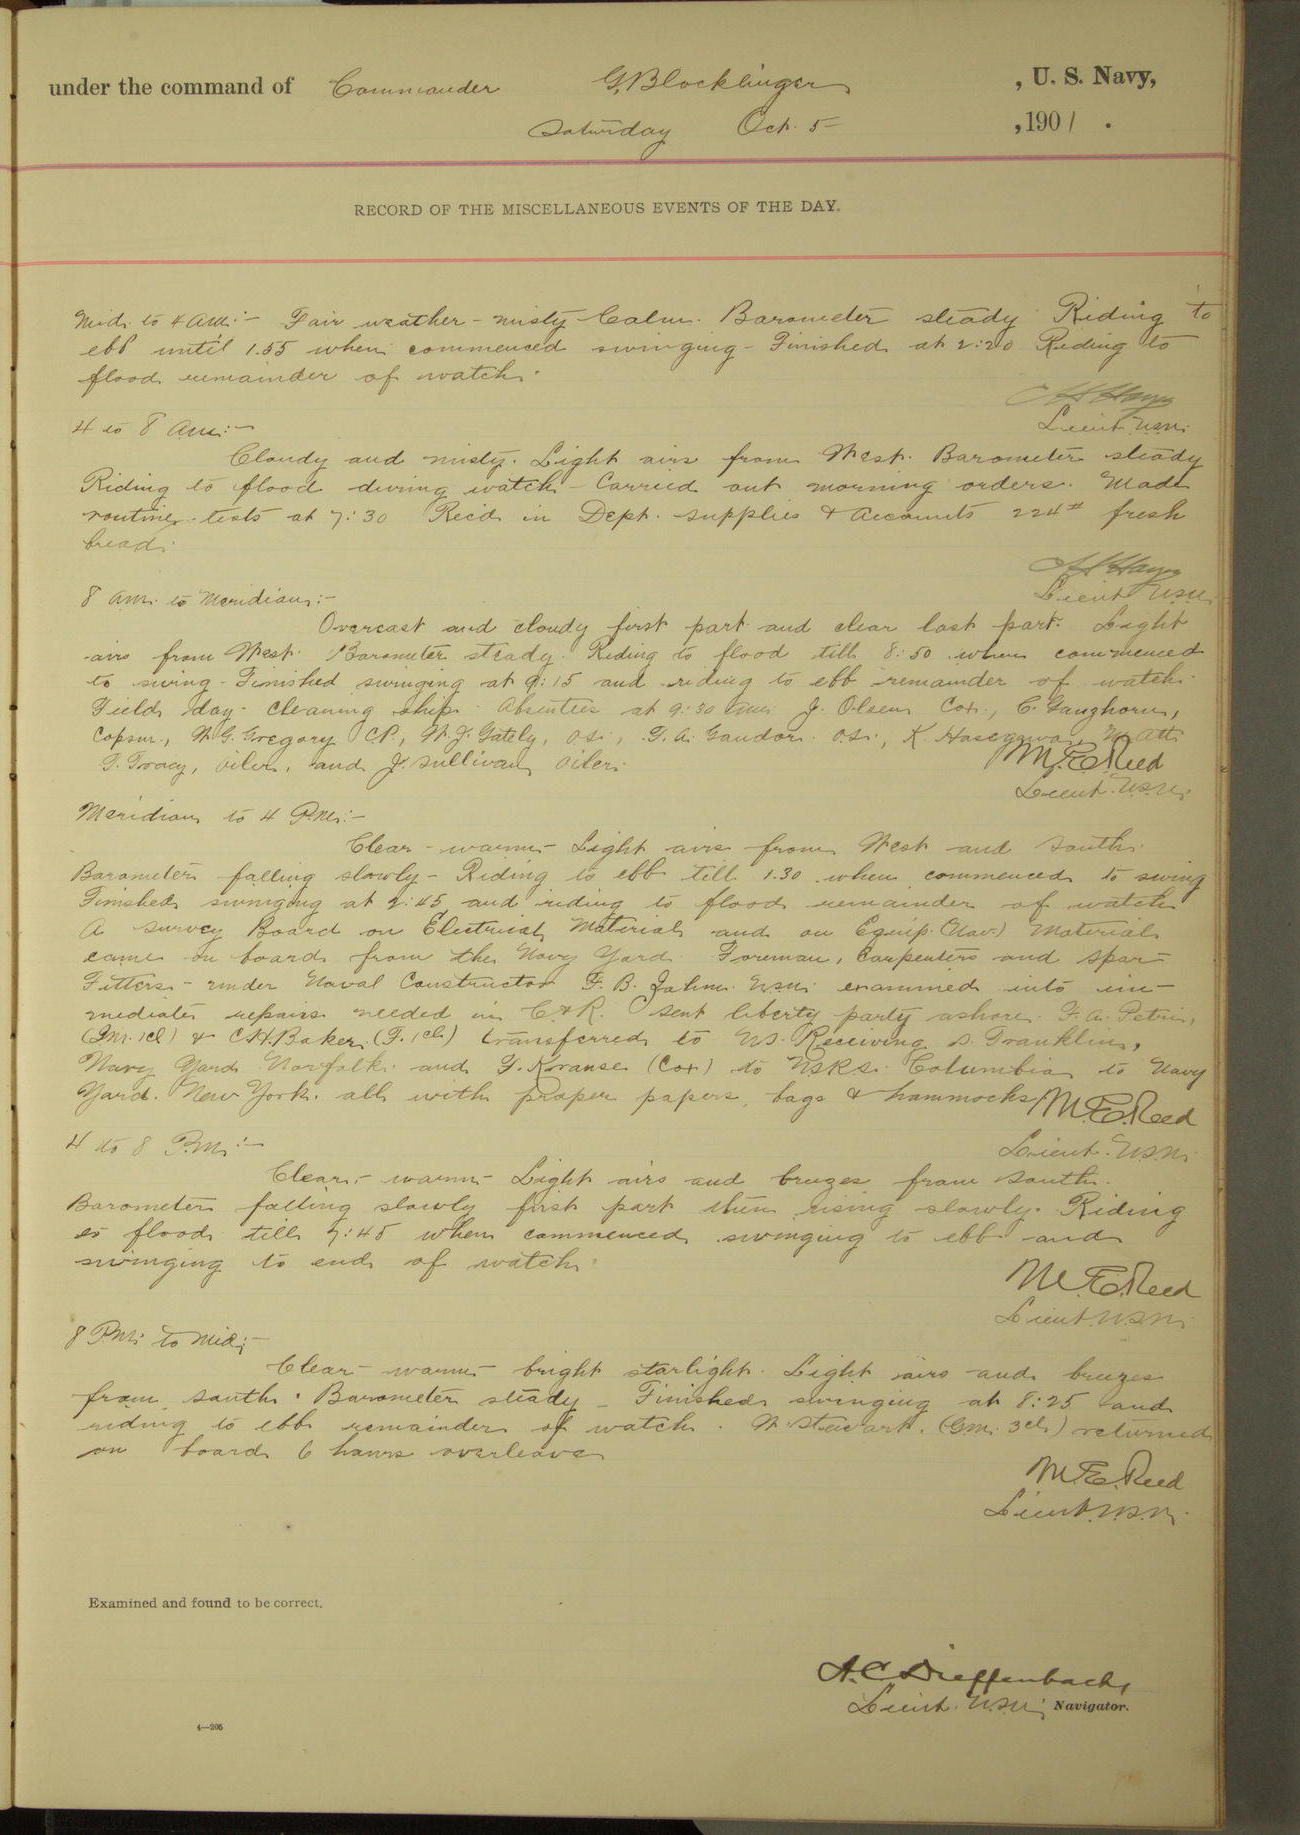 under the command of Commander G. Blocklinger, U. S. Navy,
Saturday Oct. 5 , 1901.
RECORD OF THE MISCELLANEOUS EVENTS OF THE DAY.
Mid. to 4 A.M.:- Fair weather - misty Calm. Barometer steady Riding to
ebb until 1.55 when commenced swinging - Finished at 2:20 Riding to
flood remainder of watch.
Lieut. U.S.N.
4 to 8 A.M.:-
Cloudy and misty. Light airs from West. Barometer steady
Riding to flood during watch - Carried out morning orders. Made
routine tests at 7:30 Rec'd in Dept. Supplies & Accounts 224# fresh
bread.
Lieut. U.S.N.
8 A.M. to Meridian:-
Overcast and cloudy first part and clear last part. Light
airs from West. Barometer steady. Riding to flood till 8:50 when commenced
to swing - Finished swinging at 9:15 and riding to ebb remainder of watch.
Field day - cleaning ship. Absentees at 9:30 A.M. J. Olsen Cox., C. Ganzhorn,
Copsm., W.G. Gregory CP., W.J. Gately, O.S., T.A. Gandor O.S., K. Hasegawa, M. Att.
T. Tracy, Oiler, and J. Sullivan Oiler.
M.E. Reed
Lieut. U.S.N.
Meridian to 4 P.M.:-
Clear - warm - Light airs from West and South.
Barometer falling slowly - Riding to ebb till 1.30 when commenced to swing
Finished swinging at 2:45 and riding to flood remainder of watch
A Survey Board on Electrical Material and on Equip. (Nav.) Material
came on board from the Navy Yard. Foreman, Carpenters and Spar-
Fitters - under Naval Constructor F. B. Zahm U.S.N. examined into im-
mediate repairs needed in C & R. Sent liberty party ashore. F. A. Petrie,
(Gm. 1cl) & C.H. Baker (F. 1cl) transferred to U.S. Receiving S. Franklin,
Navy Yard Norfolk. and F. Kranse (Cox) to U.S.R.S. Columbia to Navy
Yard. New York. all with proper papers, bags & hammocks
M.E. Reed
Lieut. U.S.N.
4 to 8 P.M.:-
Clear - warm - Light airs and breezes from South.
Barometer falling slowly first part then rising slowly. Riding
to flood till 7:45 when commenced swinging to ebb and
swinging to end of watch.
M.E. Reed
Lieut. U.S.N.
8 P.M. to Mid:-
Clear - warm - bright starlight. Light airs and breezes
from south. Barometer steady - Finished swinging at 8:25 and
riding to ebb remainder of watch. W. Stewart. (Gm. 3cl) returned
on board 6 hours overleave
M.E. Reed
Lieut. U.S.N.
Examined and found to be correct.
A.C. Dieffenbach,
Lieut. U.S.N., Navigator.
4—205